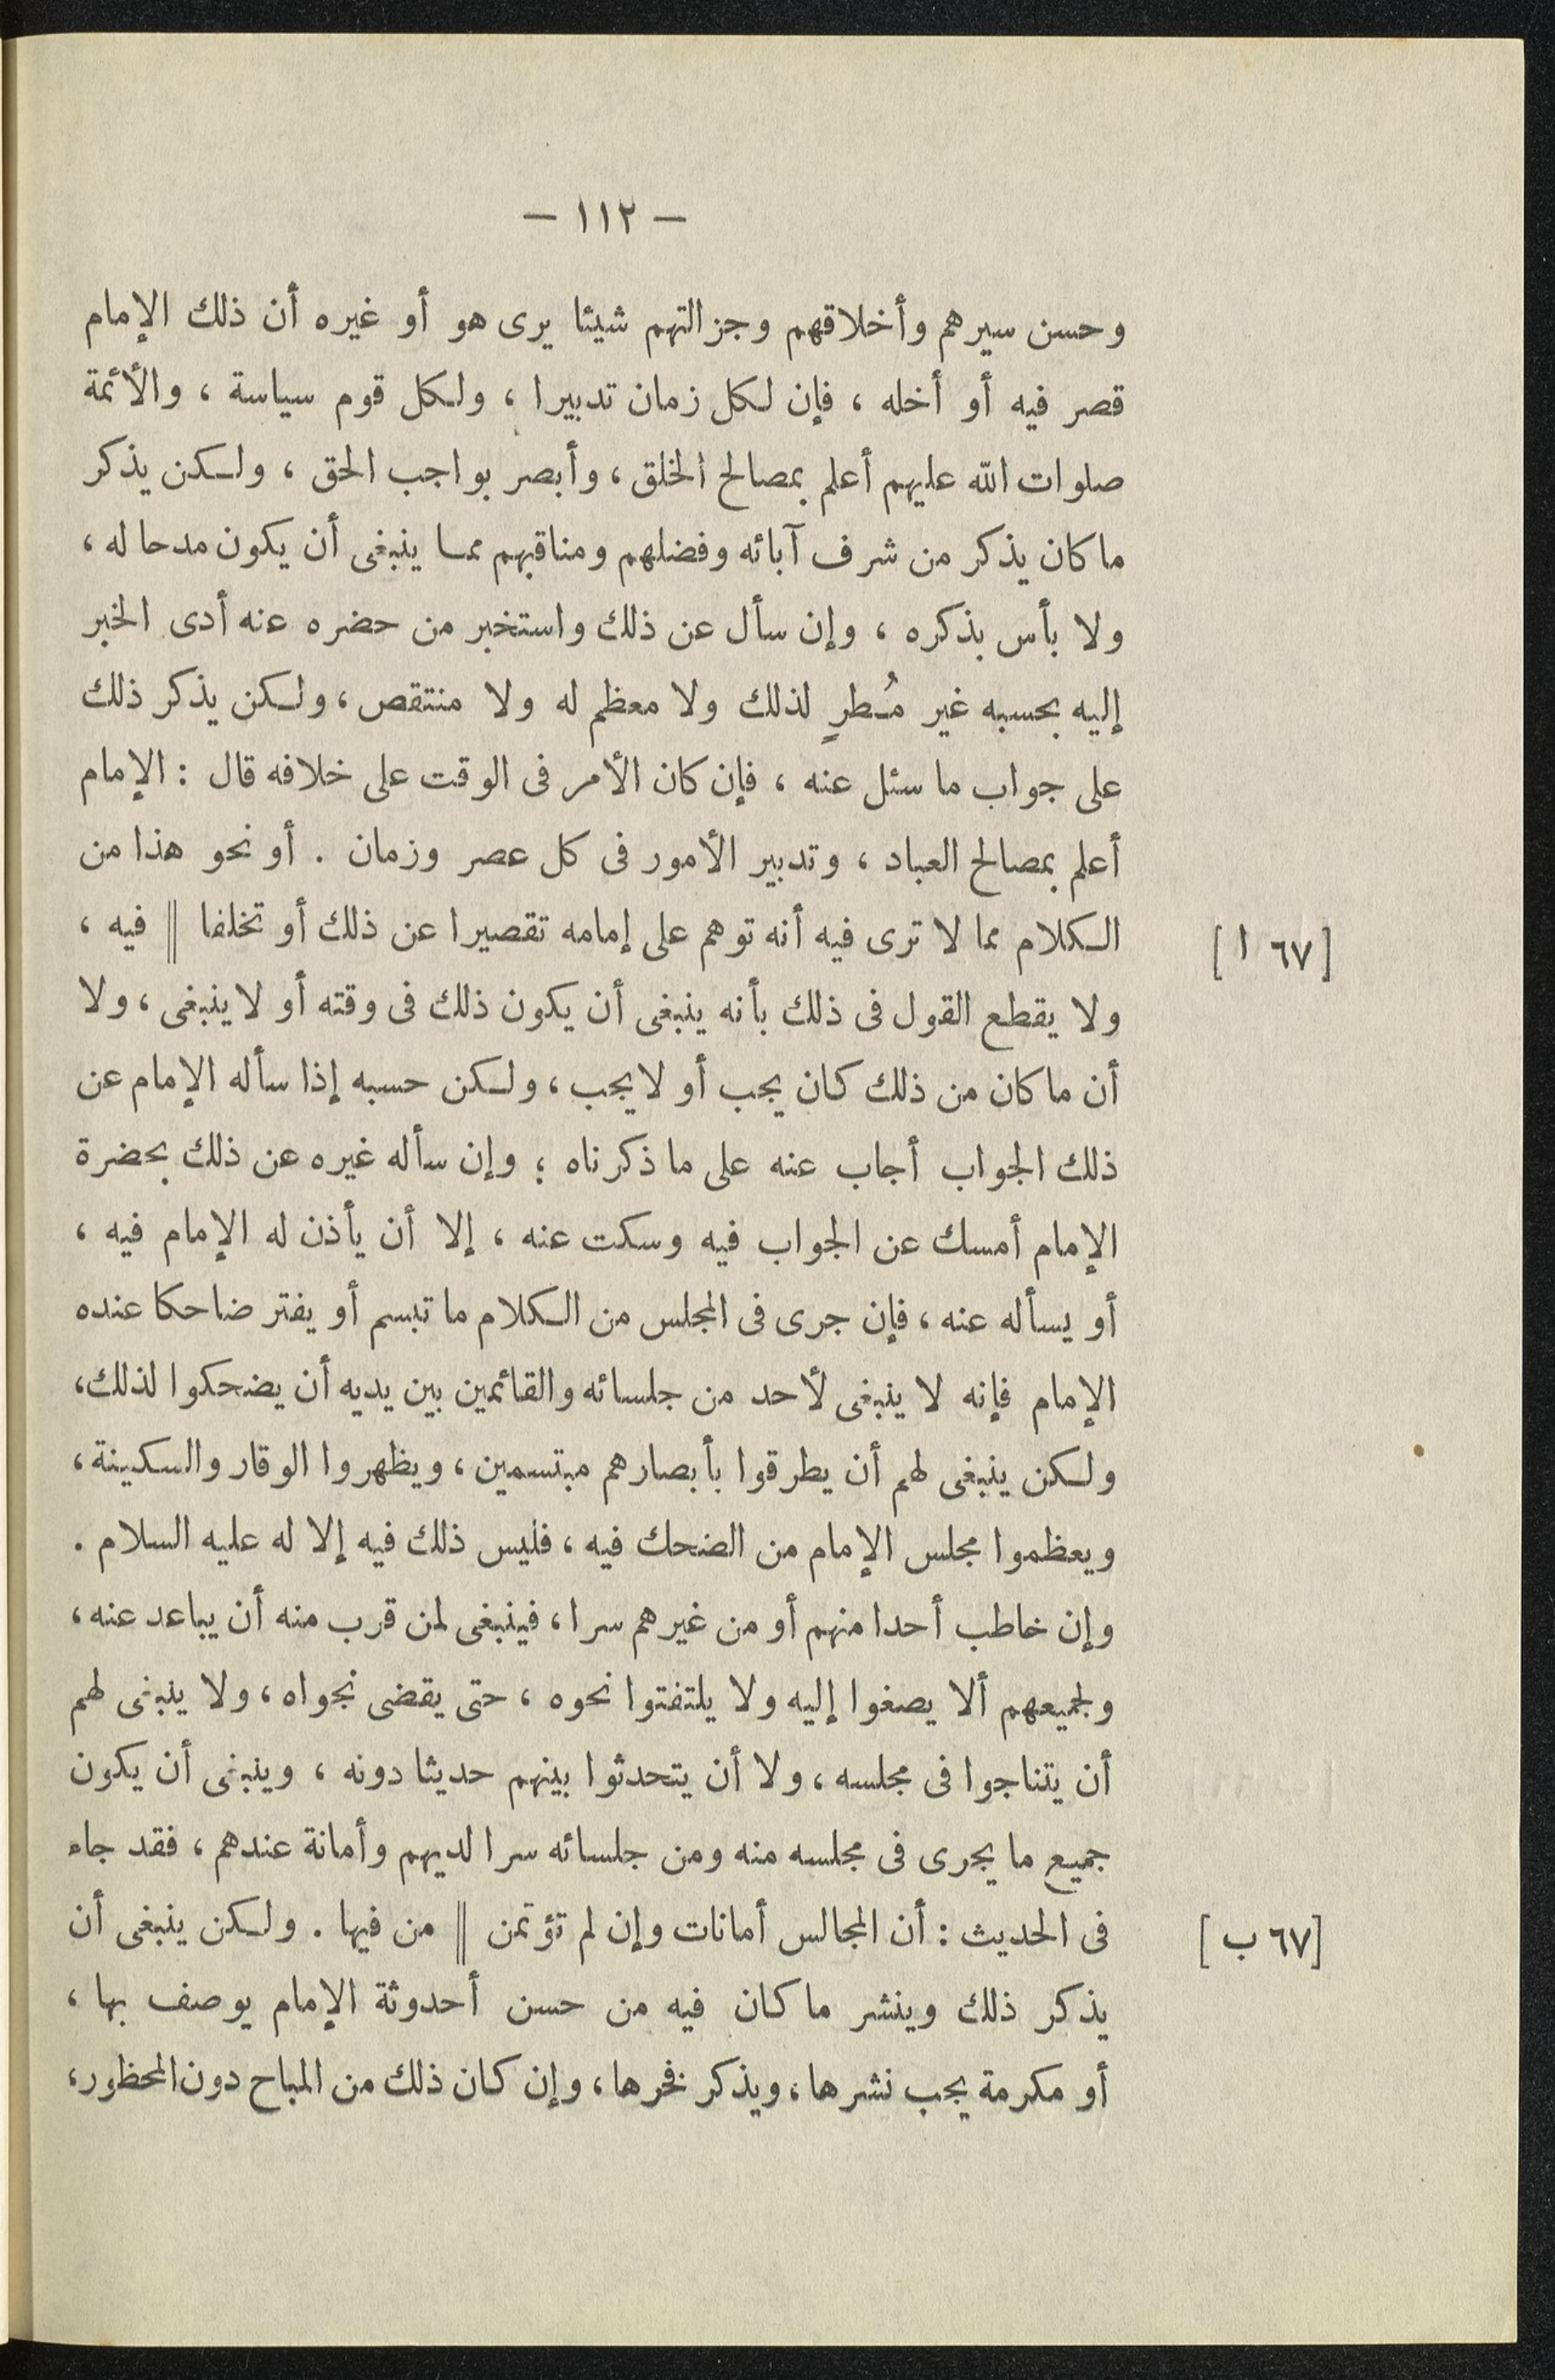 — ١١٢ —
وحسن سيرهم وأخلاقهم وجزالتهم شيئا يرى هو أو غيره أن ذلك الإمام
قصر فيه أو أخله ، فإن لكل زمان تدبيرا ، ولكل قوم سياسة ، والأئمة
صلوات الله عليهم أعلم بمصالح الخلق ، وأبصر بواجب الحق ، ولكن يذكر
ما كان يذكر من شرف آبائه وفضلهم ومناقبهم مما ينبغى أن يكون مدحا له ،
ولا بأس بذكره ، وإن سأل عن ذلك واستخبر من حضره عنه أدى الخبر
إليه بحسبه غير مُطرٍ لذلك ولا معظم له ولا منتقص ، ولكن يذكر ذلك
على جواب ما سئل عنه ، فإن كان الأمر فى الوقت على خلافه قال : الإمام
أعلم بمصالح العباد ، وتدبير الأمور فى كل عصر وزمان . أو نحو هذا من
الكلام مما لا ترى فيه أنه توهم على إمامه تقصيرا عن ذلك أو تخلفا || فيه ،
[٦٧ ا]
ولا يقطع القول فى ذلك بأنه ينبغى أن يكون ذلك فى وقته أو لا ينبغى ، ولا
أن ما كان من ذلك كان يجب أو لا يجب ، ولكن حسبه إذا سأله الإمام عن
ذلك الجواب أجاب عنه على ما ذكرناه ؛ وإن سأله غيره عن ذلك بحضرة
الإمام أمسك عن الجواب فيه وسكت عنه ، إلا أن يأذن له الإمام فيه ،
أو يسأله عنه ، فإن جرى فى المجلس من الكلام ما تبسم أو يفتر ضاحكا عنده
الإمام فإنه لا ينبغى لأحد من جلسائه والقائمين بين يديه أن يضحكوا لذلك ،
ولكن ينبغى لهم أن يطرقوا بأبصارهم مبتسمين ، ويظهروا الوقار والسكينة ،
ويعظموا مجلس الإمام من الضحك فيه ، فليس ذلك فيه إلا له عليه السلام .
وإن خاطب أحدا منهم أو من غيرهم سرا ، فينبغى لمن قرب منه أن يباعد عنه ،
ولجميعهم ألا يصغوا إليه ولا يلتفتوا نحوه ، حتى يقضى نجواه ، ولا ينبغى لهم
أن يتناجوا فى مجلسه ، ولا أن يتحدثوا بينهم حديثا دونه ، وينبغى أن يكون
جميع ما يجرى فى مجلسه منه ومن جلسائه سرا لديهم وأمانة عندهم ، فقد جاء
فى الحديث : أن المجالس أمانات وإن لم تؤتمن || من فيها . ولكن ينبغى أن
[٦٧ ب]
يذكر ذلك وينشر ما كان فيه من حسن أحدوثة الإمام يوصف بها ،
أو مكرمة يجب نشرها ، ويذكر فخرها ، وإن كان ذلك من المباح دون المحظور ،